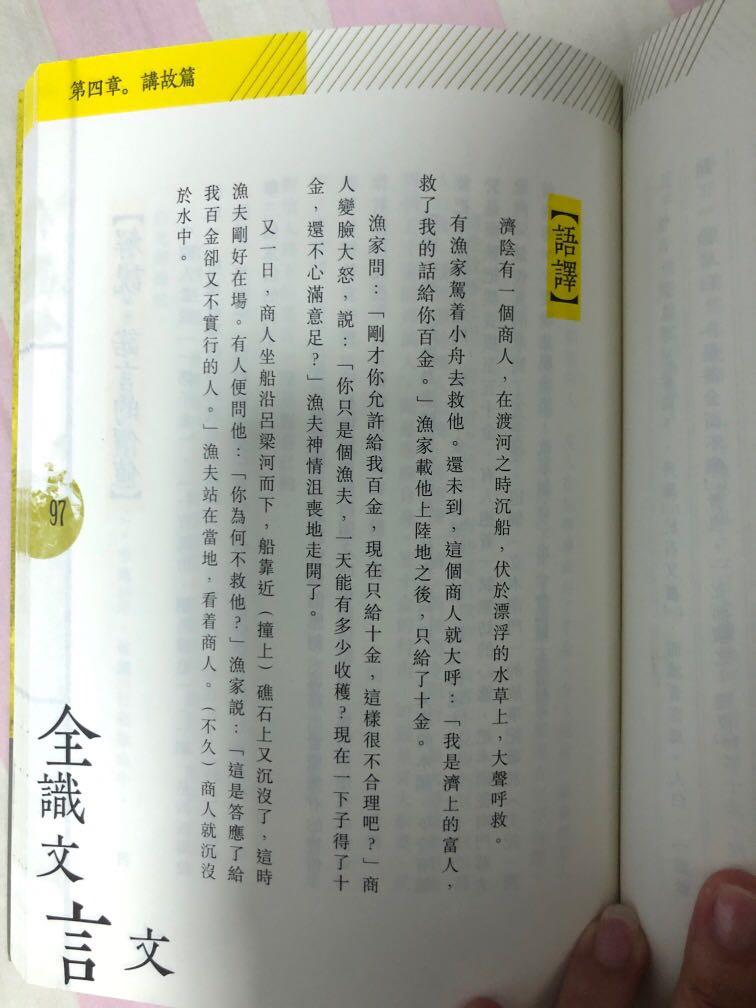 第四章。講故篇
【語譯】
濟陰有一個商人，在渡河之時沉船，伏於漂浮的水草上，大聲呼救。
有漁家駕着小舟去救他。還未到，這個商人就大呼：「我是濟上的富人，
救了我的話給你百金。」漁家載他上陸地之後，只給了十金。
漁家問：「剛才你允許給我百金，現在只給十金，這樣很不合理吧？」商
人變臉大怒，説：「你只是個漁夫，一天能有多少收穫？現在一下子得了十
金，還不心滿意足？」漁夫神情沮喪地走開了。
又一日，商人坐船沿呂梁河而下，船靠近（撞上）礁石上又沉沒了，這時
漁夫剛好在場。有人便問他：「你為何不救他？」漁家説：「這是答應了給
我百金卻又不實行的人。」漁夫站在當地，看着商人。（不久）商人就沉沒
於水中。
97
全識文言文